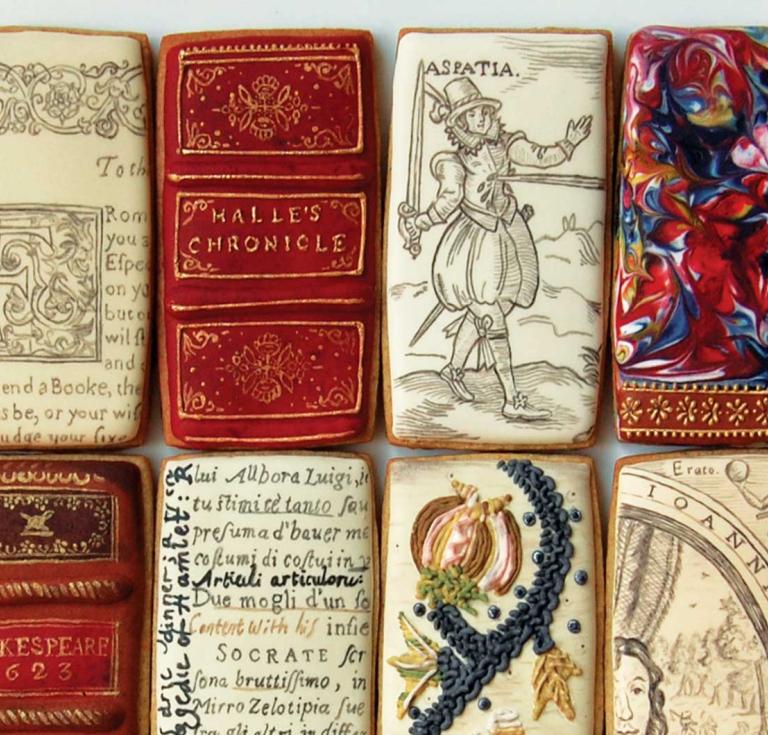 To th
Rom
you
Espec
on yo
but o
wil st
and
end a Booke, the
s be, or your wi
udge your six
HALLE'S
CHRONICLE
ASPATIA.
KESPEARE
623
lui Allbora Luigi,
tu stimi tè tanto
presuma d'hauer me
costumi di costui in
Articuli articulorum:
Due mogli d'un so
Content with his insie
SOCRATE scr
sona bruttissimo, in
Mirro Zelotipia sue
fra gli altri in differ
dinner
agedie of Hamlet: R
Erato.
IOANN